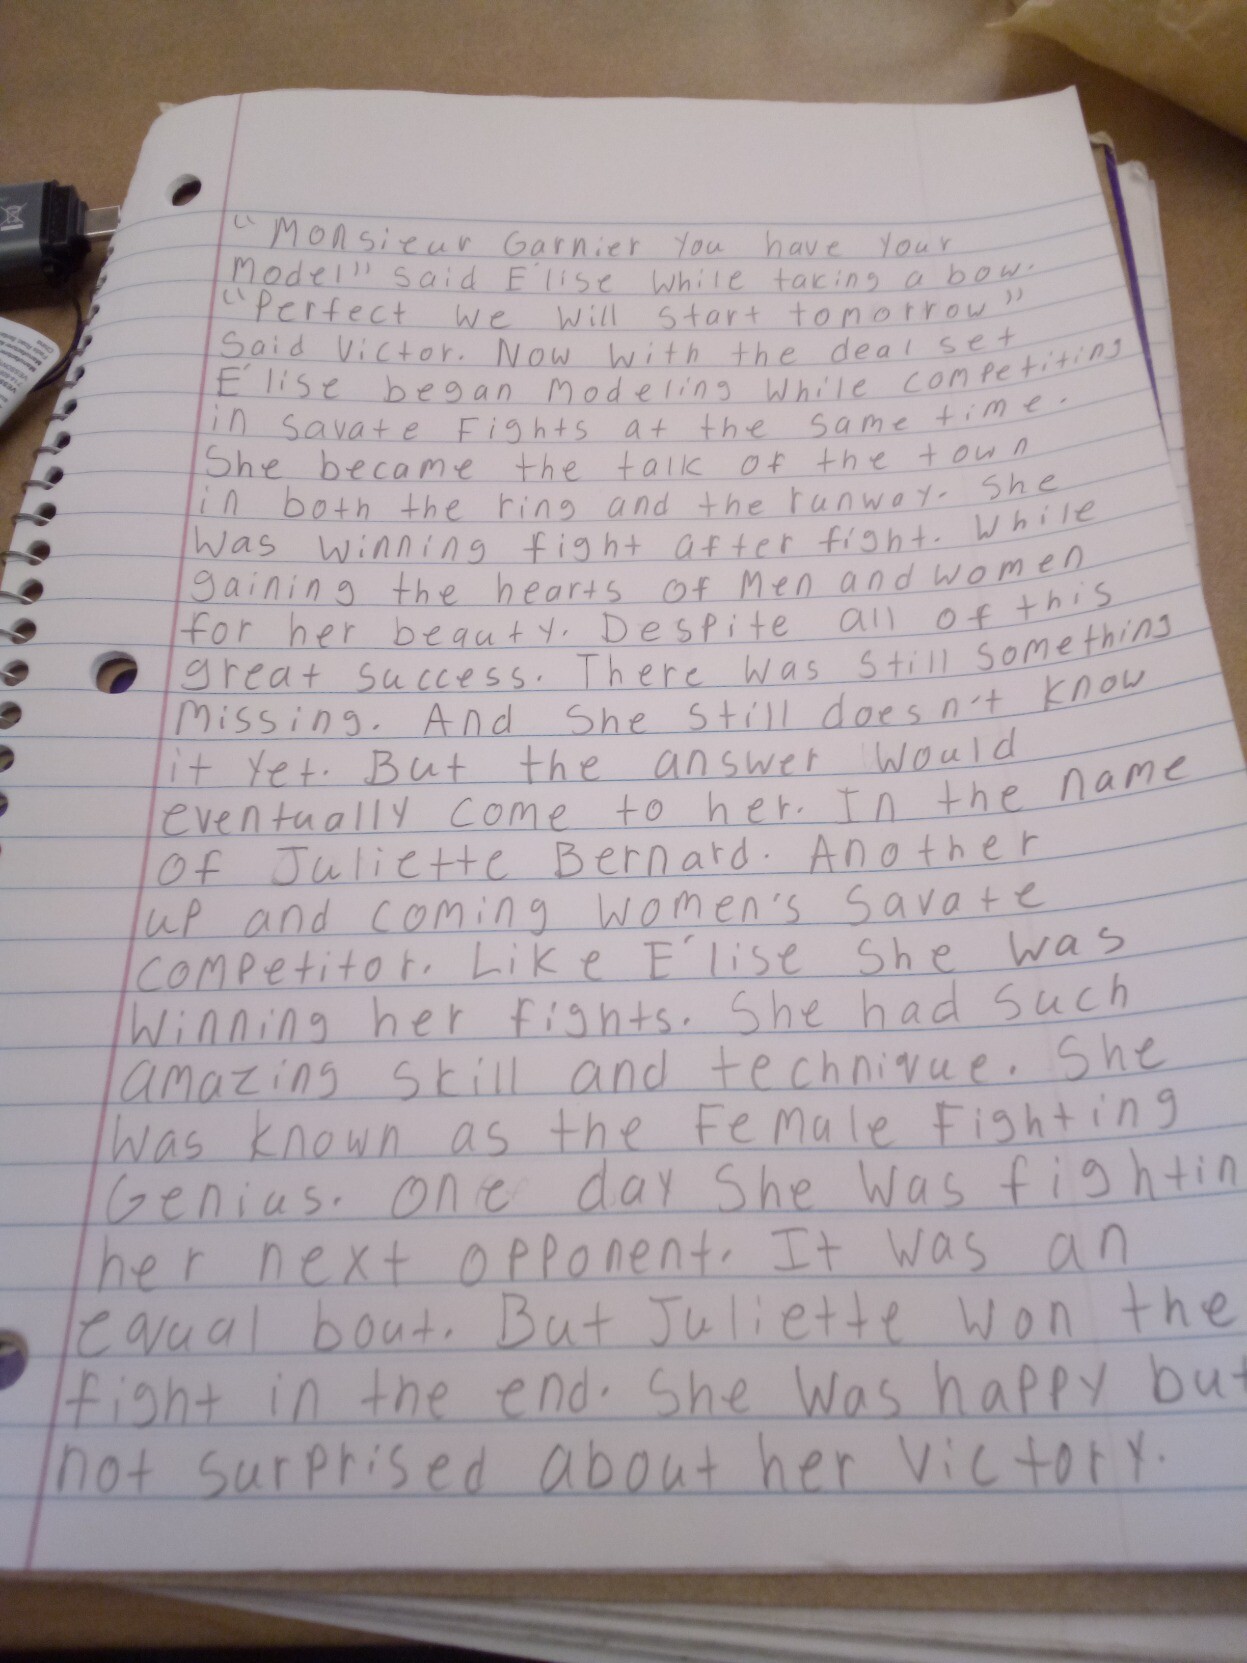 "Monsieur Garnier you have your
Model" said E'lise while taking a bow.
"Perfect we will start tomorrow"
Said Victor. Now with the deal set
E'lise began Modeling while competiting
in savate Fights at the same time.
She became the talk of the town
in both the ring and the runway. She
was winning fight after fight. While
gaining the hearts of Men and women
for her beauty. Despite all of this
great success. There was still something
Missing. And she still doesn't know
it yet. But the answer would
eventually come to her. In the name
of Juliette Bernard. Another
up and coming women's Savate
competitor. Like E'lise she was
winning her fights. She had such
amazing skill and technique. She
was known as the Female Fighting
Genius. One day she was fightin
her next opponent. It was an
equal bout. But Juliette won the
fight in the end. She was happy but
not surprised about her victory.